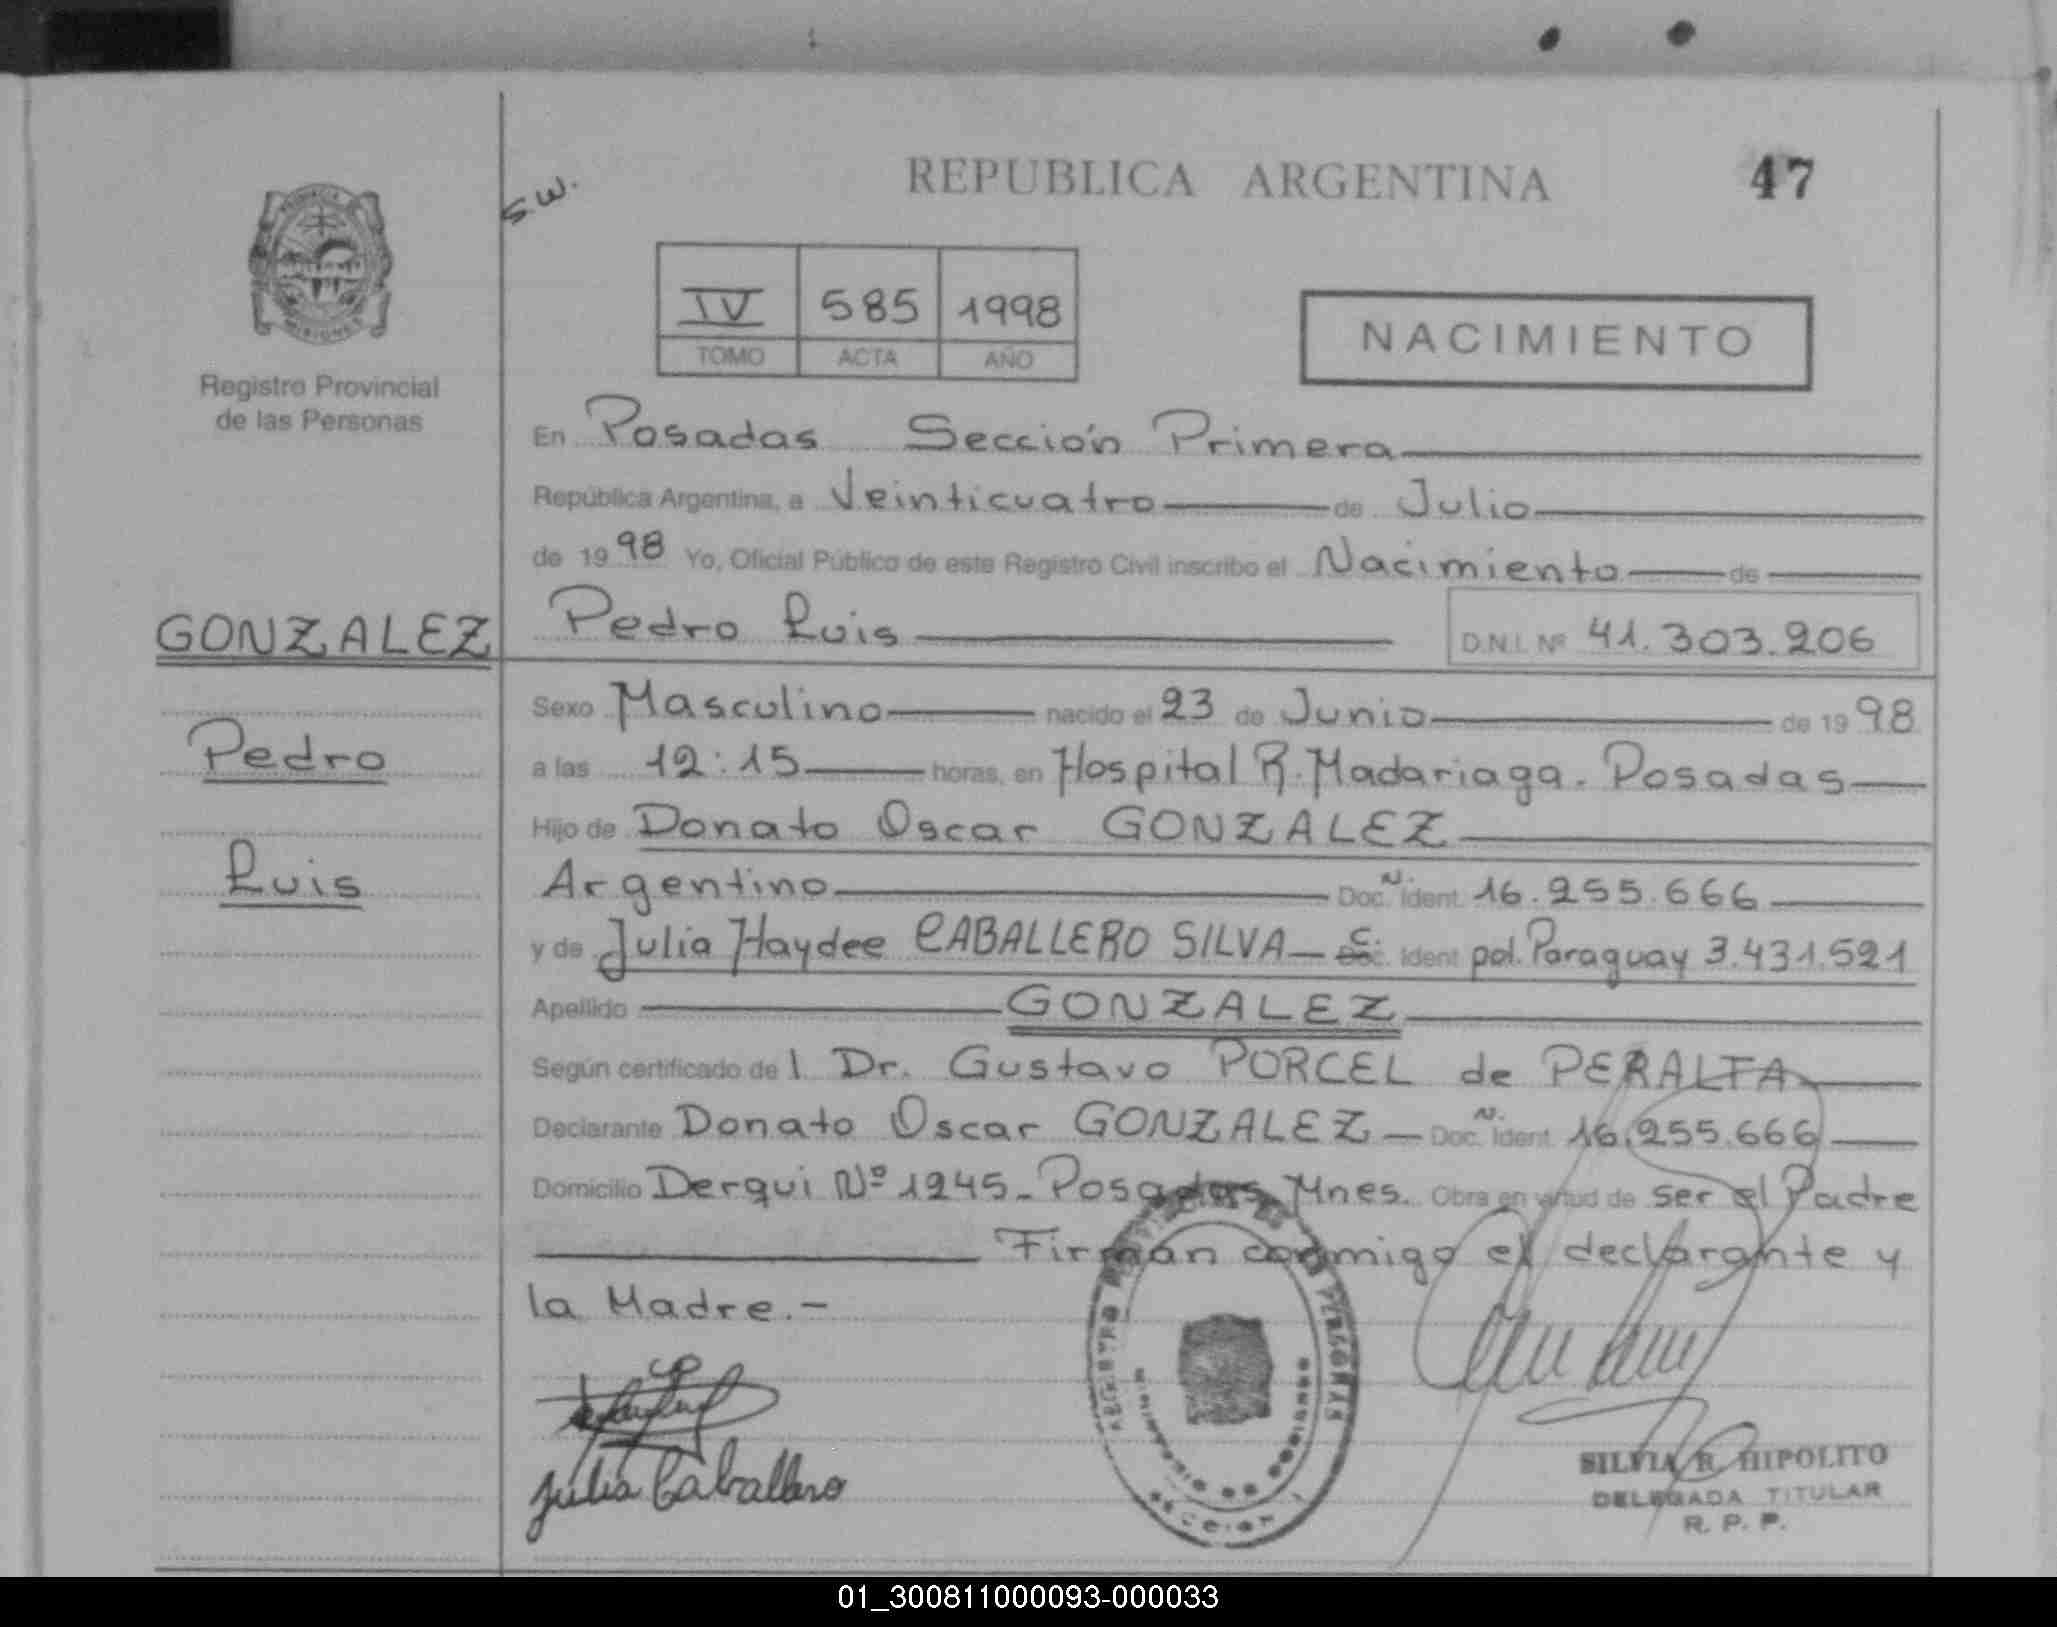 REPUBLICA ARGENTINA
47
S.W.
PROVINCIA
MISIONES
Registro Provincial
de las Personas
IV 585 1998
TOMO ACTA AÑO
NACIMIENTO
En Posadas Sección Primera
República Argentina, a Veinticuatro de Julio
de 19 98 Yo, Oficial Público de este Registro Civil inscribo el Nacimiento de
GONZALEZ
Pedro
Luis
Pedro Luis D.N.I. Nº 41.303.206
Sexo Masculino nacido el 23 de Junio de 19 98
a las 12:15 horas, en Hospital R. Madariaga. Posadas
Hijo de Donato Oscar GONZALEZ
Argentino Doc. N. Ident. 16.255.666
y de Julia Haydee CABALLERO SILVA C. Ident pol. Paraguay 3.431.521
Apellido GONZALEZ
Según certificado de l Dr. Gustavo PORCEL de PERALTA
Declarante Donato Oscar GONZALEZ Doc. N. Ident. 16.255.666
Domicilio Derqui Nº 1245- Posadas Mnes. Obra en virtud de ser el Padre
Firman conmigo el declarante y
la Madre.-
Julia Caballero
SILVIA R. HIPOLITO
DELEGADA TITULAR
R. P. P.
01_300811000093-000033